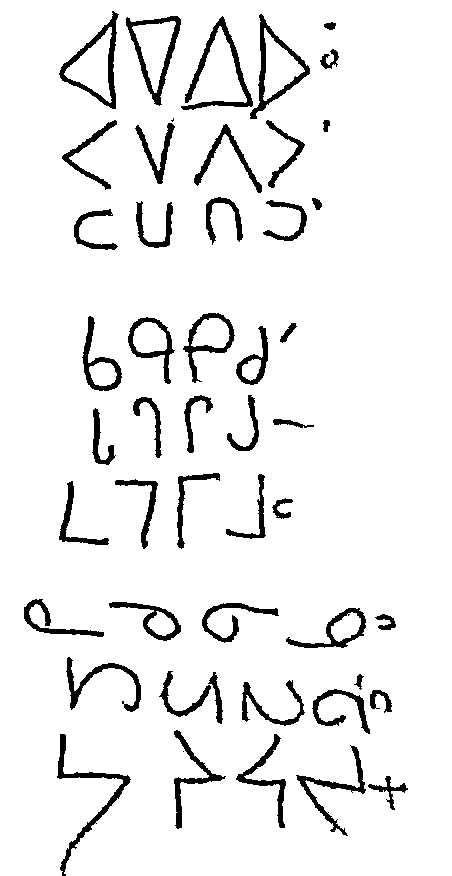 ᐊᐁᐃᐅᐤ
ᐸᐯᐱᐳᑊ
ᑕᑌᑎᑐᑊ
ᑲᑫᑭᑯᐟ
ᒐᒉᒋᒍᐨ
ᒪᒣᒥᒧᒼ
ᓇᓀᓂᓄᐣ
ᓴᓭᓯᓱᐢ
ᔭᔦᔨᔪᐩ